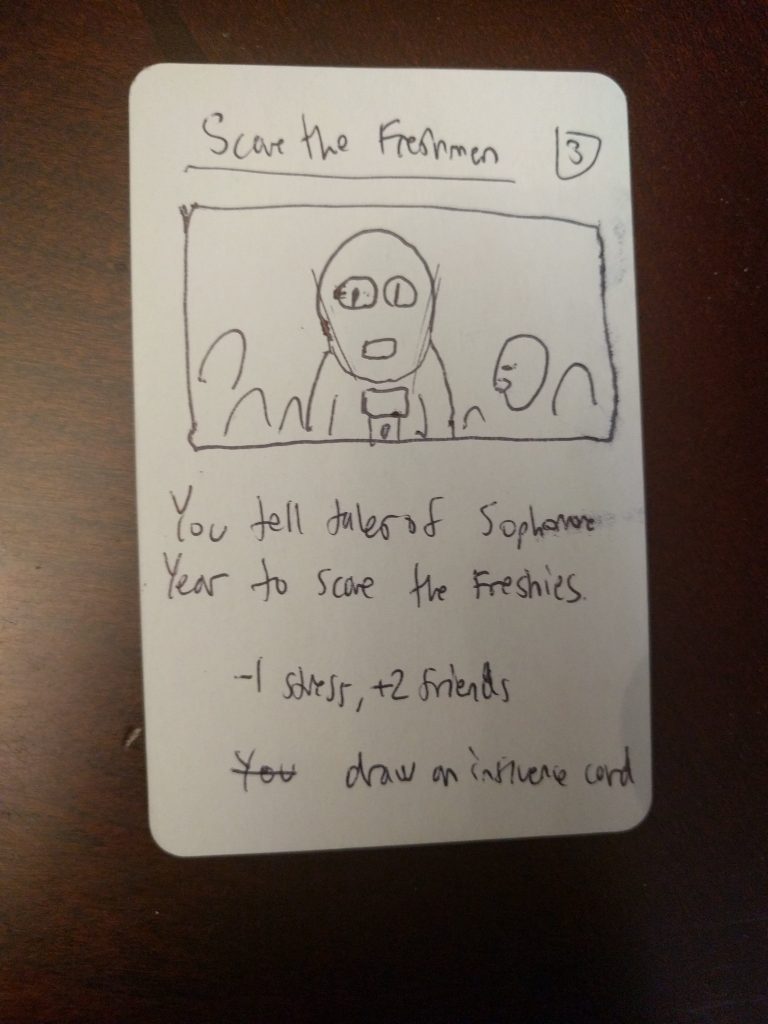 Scare the Freshmen 3
You tell tales of Sophomore
Year to scare the Freshies.
-1 stress, +2 friends
You draw an influence card